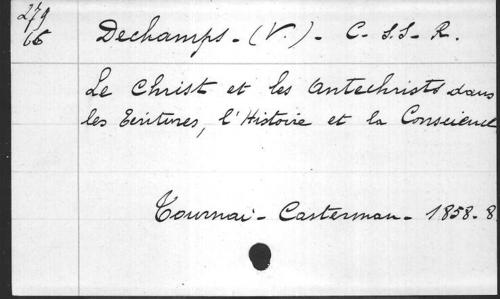 279
65
Dechamps - (V.) - C. S.S. R.
Le Christ et les Antechrists dans
les Ecritures, l'Histoire et la Conscience
Tournai - Casterman - 1858 - 8